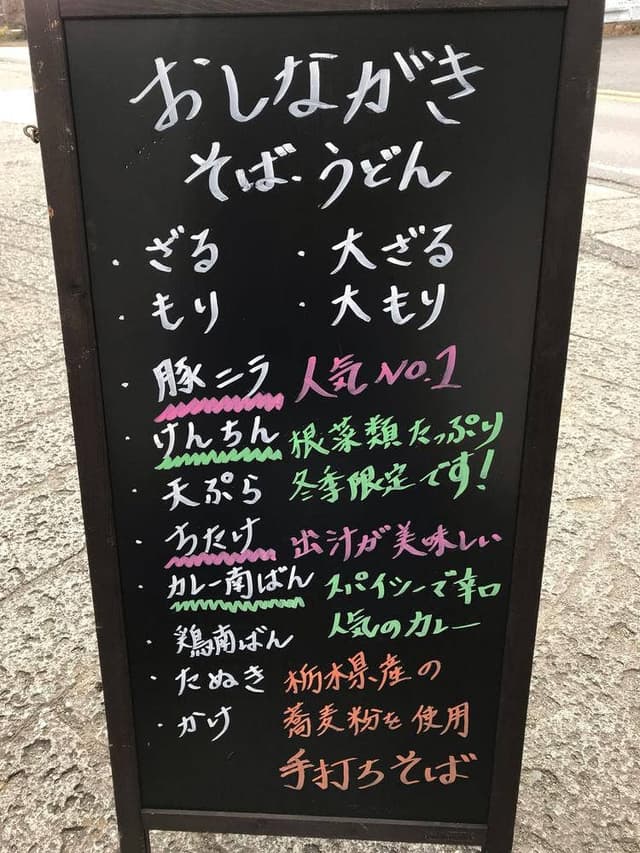 おしながき
そば・うどん
・ざる ・大ざる
・もり ・大もり
・豚ニラ 人気NO.1
・けんちん 根菜類たっぷり
・天ぷら 冬季限定です!
・ちたけ 出汁が美味しい
・カレー南ばん スパイシーで辛口
・鶏南ばん 人気のカレー
・たぬき 栃木県産の
・かけ 蕎麦粉を使用
手打ちそば